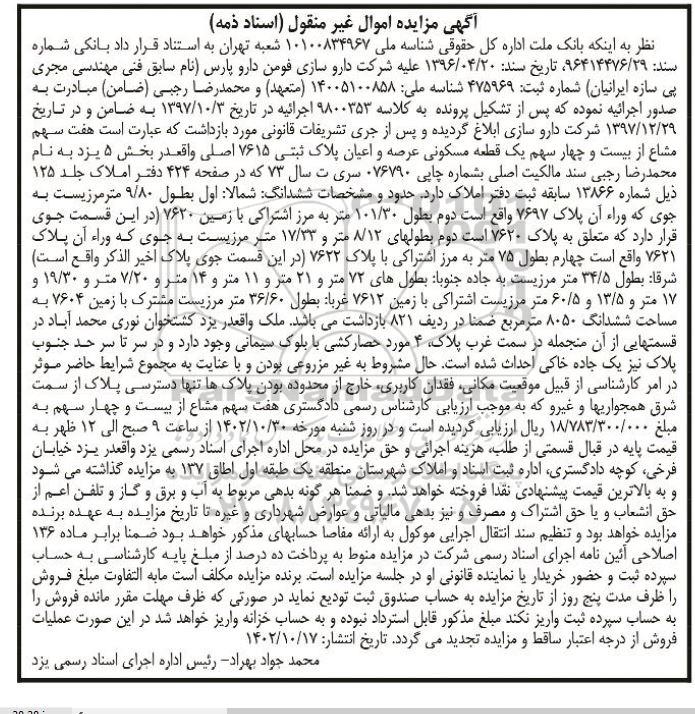 آگهی مزایده اموال غیر منقول (اسناد ذمه)
نظر به اینکه بانک ملت اداره کل حقوقی شناسه ملی ۱۰۱۰۰۸۳۴۹۶۷ شعبه تهران به استناد قرار داد بانکی شماره
سند: ۹۶۴۱۴۴۷۶/۲۹، تاریخ سند: ۱۳۹۶/۰۴/۲۰ علیه شرکت دارو سازی فومن دارو پارس (نام سابق فنی مهندسی مجری
پی سازه ایرانیان) شماره ثبت: ۴۷۵۹۶۹ شناسه ملی: ۱۴۰۰۵۱۰۰۸۵۸ (متعهد) و محمدرضا رجبی (ضامن) مبادرت به
صدور اجرائیه نموده که پس از تشکیل پرونده به کلاسه ۹۸۰۰۳۵۳ اجرائیه در تاریخ ۱۳۹۷/۱۰/۳ به ضامن و در تاریخ
۱۳۹۷/۱۲/۲۹ شرکت دارو سازی ابلاغ گردیده و پس از جری تشریفات قانونی مورد بازداشت که عبارت است هفت سهم
مشاع از بیست و چهار سهم یک قطعه مسکونی عرصه و اعیان پلاک ثبتی ۷۶۱۵ اصلی واقعدر بخش ۵ یزد به نام
محمدرضا رجبی سند مالکیت اصلی بشماره چاپی ۰۷۶۷۹۰ سری ت سال ۷۳ که در صفحه ۴۲۴ دفتر املاک جلد ۱۲۵
ذیل شماره ۱۳۸۶۶ سابقه ثبت دفتر املاک دارد. حدود و مشخصات ششدانگ: شمالا: اول بطول ۹/۸۰ مترمرزیست به
جوی که وراء آن پلاک ۷۶۹۷ واقع است دوم بطول ۱۰۱/۳۰ متر به مرز اشتراکی با زمین ۷۶۲۰ (در این قسمت جوی
قرار دارد که متعلق به پلاک ۷۶۲۰ است دوم بطولهای ۸/۱۲ متر و ۱۷/۳۳ متر مرزیست به جوی که وراء آن پلاک
۷۶۲۱ واقع است چهارم بطول ۷۵ متر به مرز اشتراکی با پلاک ۷۶۲۲ (در این قسمت جوی پلاک اخیر الذکر واقع است)
شرقا: بطول ۳۴/۵ متر مرزیست به جاده جنوبا: بطول های ۷۲ متر و ۲۱ متر و ۱۱ متر و ۱۴ متر و ۷/۲۰ متر و ۱۹/۳۰ و
۱۷ متر و ۱۳/۵ و ۶۰/۵ متر مرزیست اشتراکی با زمین ۷۶۱۲ غربا: بطول ۳۶/۶۰ متر مرزیست مشترک با زمین ۷۶۰۴ به
مساحت ششدانگ ۸۰۵۰ مترمربع ضمنا در ردیف ۸۲۱ بازداشت می باشد. ملک واقعدر یزد کشتخوان نوری محمد آباد در
قسمتهایی از آن منجمله در سمت غرب پلاک، ۴ مورد حصارکشی با بلوک سیمانی وجود دارد و در سر تا سر حد جنوب
پلاک نیز یک جاده خاکی احداث شده است. حال مشروط به غیر مزروعی بودن و با عنایت به مجموع شرایط حاضر موثر
در امر کارشناسی از قبیل موقعیت مکانی، فقدان کاربری، خارج از محدوده بودن پلاک ها تنها دسترسی پلاک از سمت
شرق همجواریها و غیرو که به موجب ارزیابی کارشناس رسمی دادگستری هفت سهم مشاع از بیست و چهار سهم به
مبلغ ۱۸/۷۸۳/۳۰۰/۰۰۰ ریال ارزیابی گردیده است و در روز شنبه مورخه ۱۴۰۲/۱۰/۳۰ از ساعت ۹ صبح الی ۱۲ ظهر به
قیمت پایه در قبال قسمتی از طلب، هزینه اجرائی و حق مزایده در محل اداره اجرای اسناد رسمی یزد واقعدر یزد خیابان
فرخی، کوچه دادگستری، اداره ثبت اسناد و املاک شهرستان منطقه یک طبقه اول اطاق ۱۳۷ به مزایده گذاشته می شود
و به بالاترین قیمت پیشنهادی نقدا فروخته خواهد شد. و ضمنا هر گونه بدهی مربوط به آب و برق و گاز و تلفن اعم از
حق انشعاب و یا حق اشتراک و مصرف و نیز بدهی مالیاتی و عوارض شهرداری و غیره تا تاریخ مزایده به عهده برنده
مزایده خواهد بود و تنظیم سند انتقال اجرایی موکول به ارائه مفاصا حسابهای مذکور خواهد بود ضمنا برابر ماده ۱۳۶
اصلاحی آئین نامه اجرای اسناد رسمی شرکت در مزایده منوط به پرداخت ده درصد از مبلغ پایه کارشناسی به حساب
سپرده ثبت و حضور خریدار یا نماینده قانونی او در جلسه مزایده است. برنده مزایده مکلف است مابه التفاوت مبلغ فروش
را ظرف مدت پنج روز از تاریخ مزایده به حساب صندوق ثبت تودیع نماید در صورتی که ظرف مهلت مقرر مانده فروش را
به حساب سپرده ثبت واریز نکند مبلغ مذکور قابل استرداد نبوده و به حساب خزانه واریز خواهد شد در این صورت عملیات
فروش از درجه اعتبار ساقط و مزایده تجدید می گردد. تاریخ انتشار: ۱۴۰۲/۱۰/۱۷
محمد جواد بهراد- رئیس اداره اجرای اسناد رسمی یزد